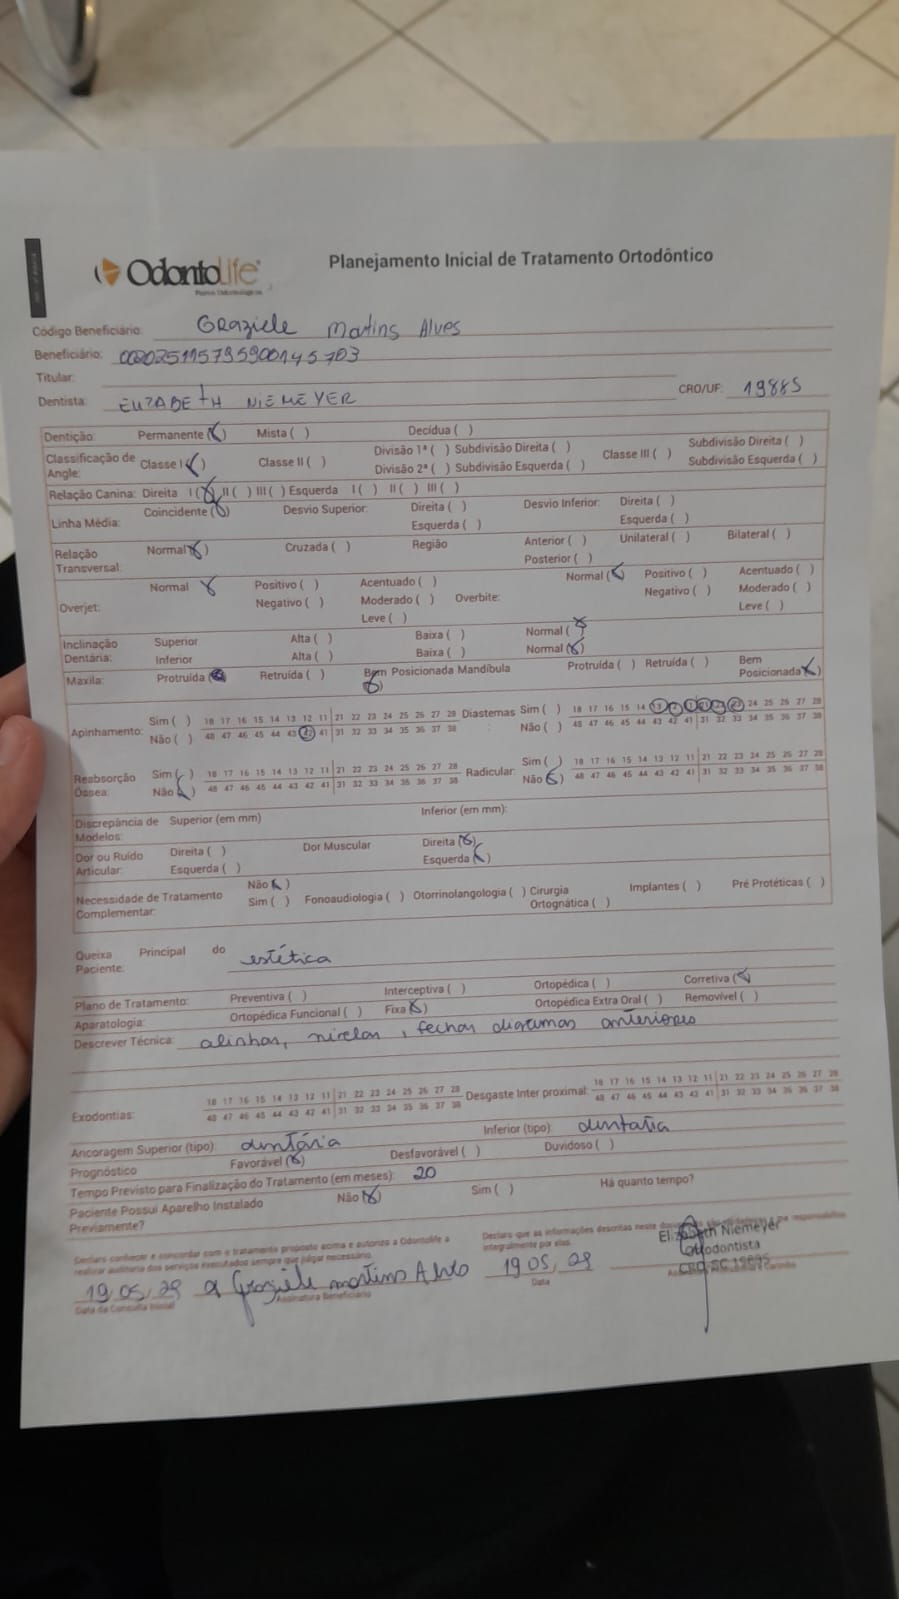 OdontoLife
Planos Odontológicos
Planejamento Inicial de Tratamento Ortodôntico
Código Beneficiário: Graziele Martins Alves
Beneficiário: 00202511579590014570 3
Titular:
Dentista: ELIZABETH NIEMEYER CRO/UF: 19885
Dentição: Permanente (X) Mista ( ) Decídua ( )
Classificação de Angle: Classe I (X) Classe II ( ) Divisão 1ª ( ) Subdivisão Direita ( ) Classe III ( ) Subdivisão Direita ( )
Divisão 2ª ( ) Subdivisão Esquerda ( ) Subdivisão Esquerda ( )
Relação Canina: Direita I (X) II ( ) III ( ) Esquerda I ( ) II ( ) III ( )
Linha Média: Coincidente (X) Desvio Superior: Direita ( ) Desvio Inferior: Direita ( )
Esquerda ( ) Esquerda ( )
Relação Transversal: Normal (X) Cruzada ( ) Região Anterior ( ) Unilateral ( ) Bilateral ( )
Posterior ( )
Overjet: Normal X Positivo ( ) Acentuado ( ) Overbite: Normal (X) Positivo ( ) Acentuado ( )
Negativo ( ) Moderado ( ) Negativo ( ) Moderado ( )
Leve ( ) Leve ( )
Inclinação Dentária: Superior Alta ( ) Baixa ( ) Normal (X)
Inferior Alta ( ) Baixa ( ) Normal (X)
Maxila: Protruída ( ) Retruída ( ) Bem Posicionada (X) Mandíbula Protruída ( ) Retruída ( ) Bem Posicionada (X)
Apinhamento: Sim ( ) 18 17 16 15 14 13 12 11 21 22 23 24 25 26 27 28 Diastemas Sim ( ) 18 17 16 15 14 13 24 25 26 27 28
Não ( ) 48 47 46 45 44 43 42 41 31 32 33 34 35 36 37 38 Não ( ) 48 47 46 45 44 43 42 41 31 32 33 34 35 36 37 38
Reabsorção Óssea: Sim ( ) 18 17 16 15 14 13 12 11 21 22 23 24 25 26 27 28 Radicular: Sim ( ) 18 17 16 15 14 13 12 11 21 22 23 24 25 26 27 28
Não (X) 48 47 46 45 44 43 42 41 31 32 33 34 35 36 37 38 Não (X) 48 47 46 45 44 43 42 41 31 32 33 34 35 36 37 38
Discrepância de Modelos: Superior (em mm) Inferior (em mm):
Dor ou Ruído Articular: Direita ( ) Dor Muscular Direita (X)
Esquerda ( ) Esquerda (X)
Necessidade de Tratamento Complementar: Não (X)
Sim ( ) Fonoaudiologia ( ) Otorrinolangologia ( ) Cirurgia Ortognática ( ) Implantes ( ) Pré Protéticas ( )
Queixa Principal do Paciente: estética
Plano de Tratamento: Preventiva ( ) Interceptiva ( ) Ortopédica ( ) Corretiva (X)
Aparatologia: Ortopédica Funcional ( ) Fixa (X) Ortopédica Extra Oral ( ) Removível ( )
Descrever Técnica: alinhar, nivelar, fechar anteriores
Exodontias: 18 17 16 15 14 13 12 11 21 22 23 24 25 26 27 28 Desgaste Inter proximal: 18 17 16 15 14 13 12 11 21 22 23 24 25 26 27 28
48 47 46 45 44 43 42 41 31 32 33 34 35 36 37 38 48 47 46 45 44 43 42 41 31 32 33 34 35 36 37 38
Ancoragem Superior (tipo): dentária Inferior (tipo): dentária
Prognóstico Favorável (X) Desfavorável ( ) Duvidoso ( )
Tempo Previsto para Finalização do Tratamento (em meses): 20
Paciente Possui Aparelho Instalado Previamente? Não (X) Sim ( ) Há quanto tempo?
Declaro conhecer e concordar com o tratamento proposto acima e autorizo a Odontolife a realizar auditoria dos serviços executados sempre que julgar necessário.
Declaro que as informações descritas neste me responsabilizo integralmente por elas.
Elizabeth Niemeyer
Ortodontista
CRO SC 19885
19, 05, 25 Graziele martins Alves 19 05, 25
Data da Consulta Inicial Assinatura Beneficiário Data